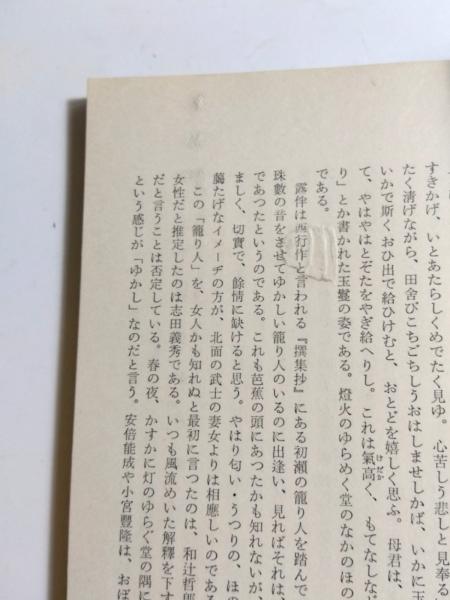 すきかげ、いとあたらしくめでたく見ゆ。心苦しう悲しと見奉る
たく淸げながら、田舍びこちごちしうおはしませしかば、いかに玉
いかで斯くおひ出で給ひけむと、おとどを嬉しく思ふ。母君は、
て、やはやはとぞたをやぎ給へりし。これは氣高く、もてなしな
り」とか書かれた玉鬘の姿である。燈火のゆらめく堂のなかのほの
である。
露伴は西行作と言われる『撰集抄』にある初瀬の籠り人を踏んで
珠數の音をさせてゆかしい籠り人のいるのに出逢い、見ればそれは、
であつたというのである。これも芭蕉の頭にあつたかも知れないが、
ましく、切實で、餘情に缺けると思う。やはり匂い・うつりの、ほの
﨟たげなイメーヂの方が、北面の武士の妻女よりは相應しいのである
この「籠り人」を、女人かも知れぬと最初に言つたのは、和辻哲郎
女性だと推定したのは志田義秀である。いつも風流めいた解釋を下す
だと言うことは否定している。春の夜、かすかに灯のゆらぐ堂の隅に
という感じが「ゆかし」なのだと言う。安倍能成や小宮豐隆は、おぼ